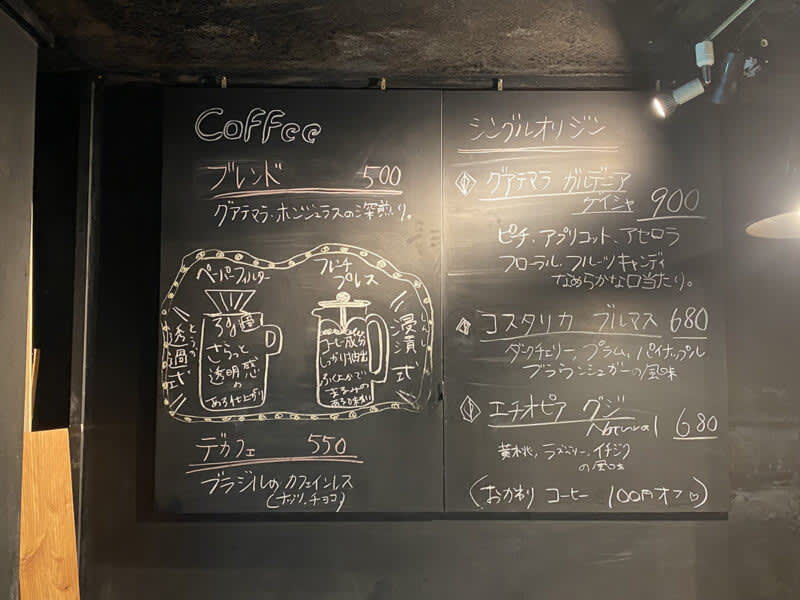 Coffee
ブレンド 500
グアテマラ・ホンジュラスの深煎り。
ペーパーフィルター
フレンチ
プレス
透過式
とうか
ろ過
さらっと
透明感
の
ある仕上がり
浸漬式
しんし
コーヒー成分
しっかり抽出
ふくよかで
まろみの
ある味わい
デカフェ 550
ブラジルの、カフェインレス
(ナッツ、チョコ)
シングルオリジン
グアテマラ ガルデニア
ゲイシャ 900
ピーチ、アプリコット、アセロラ
フローラル、フルーツキャンディ
なめらかな口当たり。
コスタリカ ブルマス 680
ダークチェリー、プラム、パイナップル
ブラウンシュガーの風味
エチオピア グジ
Natural 680
黄桃、ラズベリー、イチジク
の風味
(おかわり コーヒー 100円オフ♡)